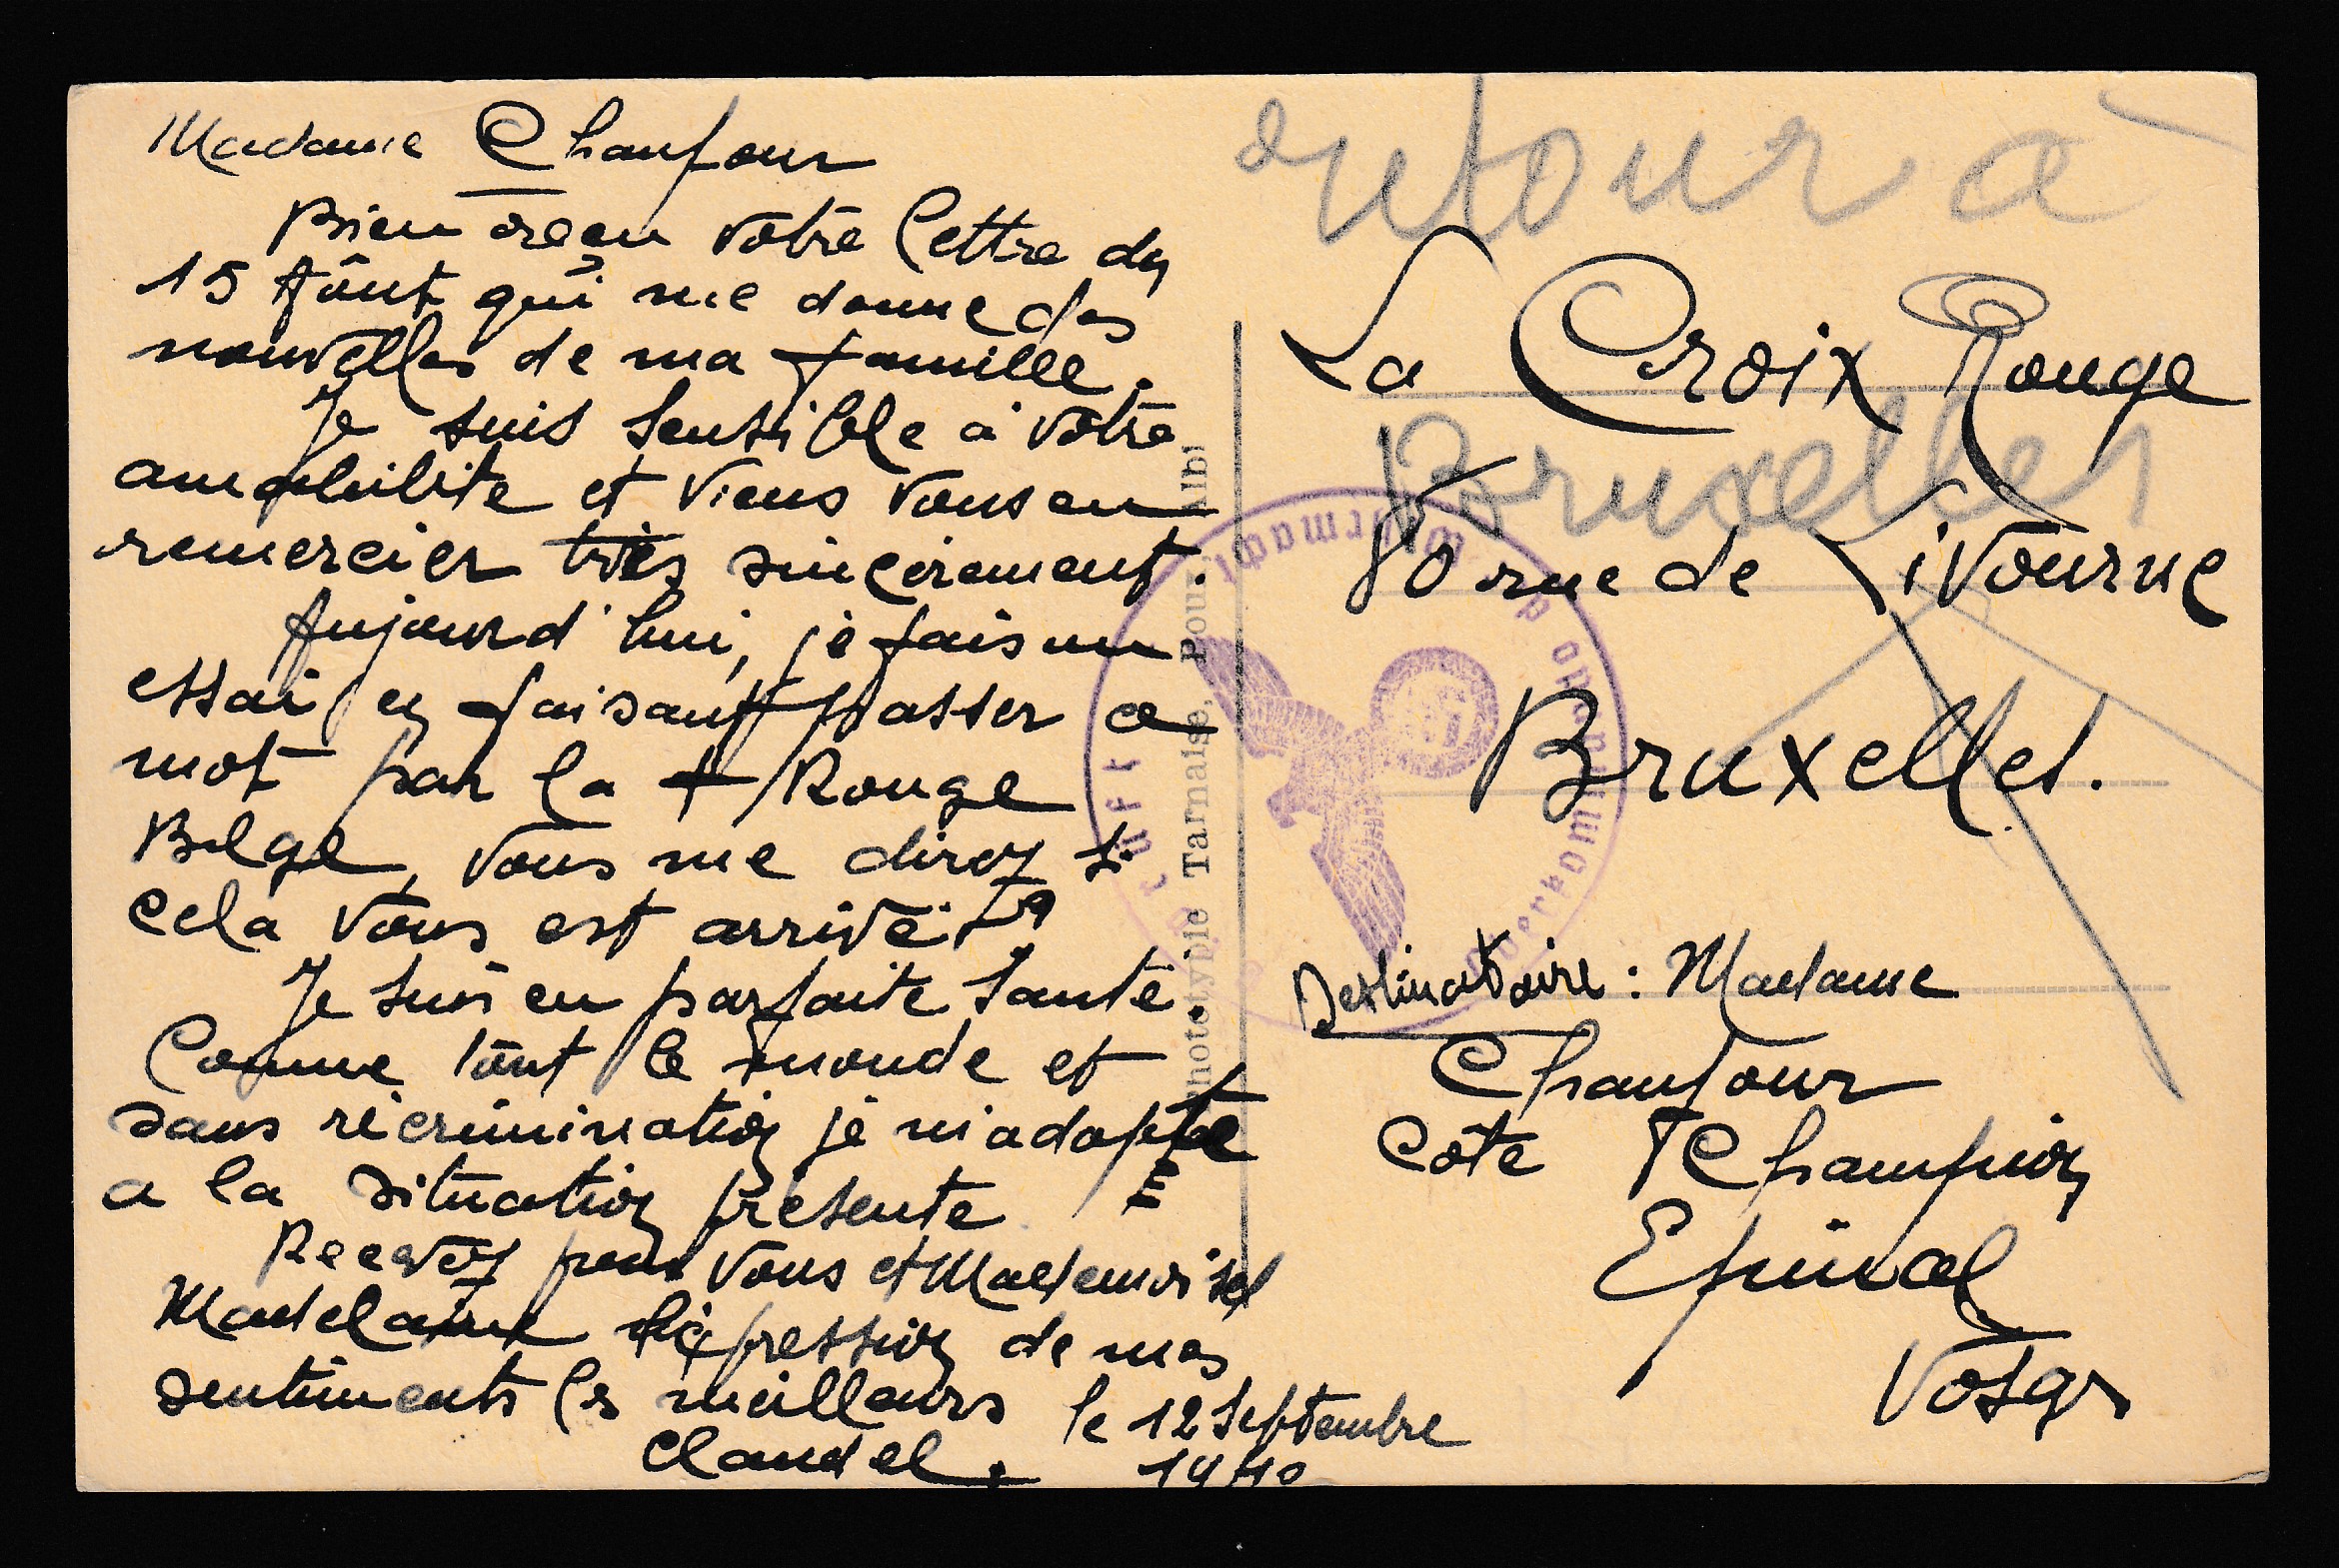 Madame Chanfour
Bien reçu votre lettre du
15 Aôut qui me donne des
nouvelles de ma famille.
Je suis sensible à votre
amabilite et viens vous en
remercier très sincèrement.
Aujourd'hui, je fais un
essai en faisant passer ce
mot par la + Rouge
Belge, vous me direz si
cela vous est arrivé?
Je suis en parfaite santé.
Comme tout le monde et
sans récrimination je m'adapte
a la situation présente
Recevez pour vous et Mademoisel
Madelaine l'expression de mes
sentiments les meilleurs
Claudel.
le 12 Septembre
1940
Phototypie Tarnaise, Pour, Albi
retour à
La Croix Rouge
Bruxelles
80 rue de Livourne
Bruxelles.
Oberkommando d. Wehrmacht
Geprüft
Destinataire: Madame
Chanfour
Côte Champion
Epinal
Vosges